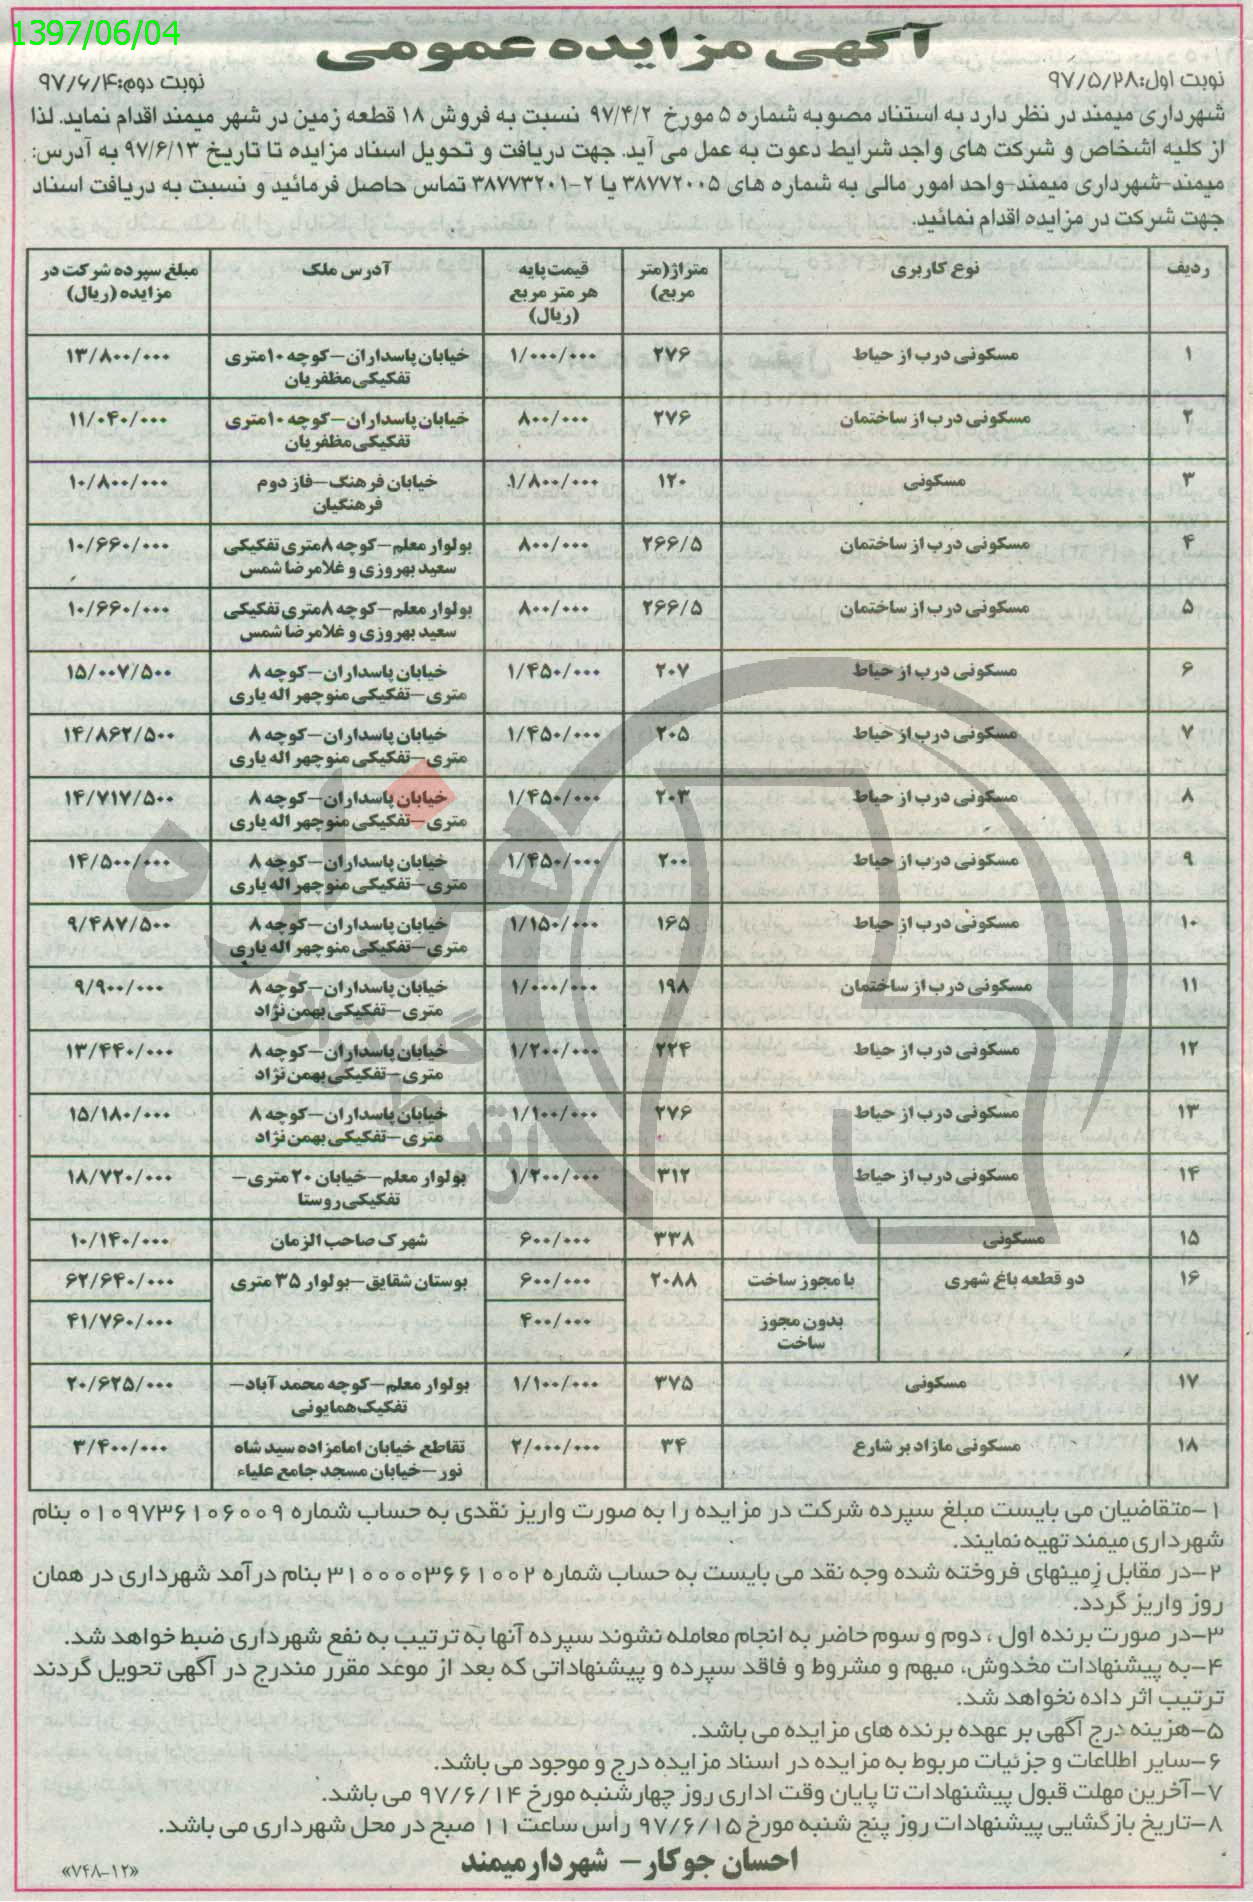 1397/06/04
آگهی مزایده عمومی
نوبت اول:۹۷/۵/۲۸
نوبت دوم:۹۷/۶/۴
شهرداری میمند در نظر دارد به استناد مصوبه شماره ۵ مورخ ۹۷/۴/۲ نسبت به فروش ۱۸ قطعه زمین در شهر میمند اقدام نماید. لذا
از کلیه اشخاص و شرکت های واجد شرایط دعوت به عمل می آید. جهت دریافت و تحویل اسناد مزایده تا تاریخ ۹۷/۶/۱۳ به آدرس:
میمند-شهرداری میمند-واحد امور مالی به شماره های ۳۸۷۷۲۰۰۵ یا ۲-۳۸۷۷۳۲۰۱ تماس حاصل فرمائید و نسبت به دریافت اسناد
جهت شرکت در مزایده اقدام نمائید.
ردیف | نوع کاربری | متراژ(متر مربع) | قیمت پایه هر متر مربع (ریال) | آدرس ملک | مبلغ سپرده شرکت در مزایده (ریال)
۱ | مسکونی درب از حیاط | ۲۷۶ | ۱/۰۰۰/۰۰۰ | خیابان پاسداران-کوچه ۱۰متری تفکیکی مظفریان | ۱۳/۸۰۰/۰۰۰
۲ | مسکونی درب از ساختمان | ۲۷۶ | ۸۰۰/۰۰۰ | خیابان پاسداران-کوچه ۱۰متری تفکیکی مظفریان | ۱۱/۰۴۰/۰۰۰
۳ | مسکونی | ۱۲۰ | ۱/۸۰۰/۰۰۰ | خیابان فرهنگ-فاز دوم فرهنگیان | ۱۰/۸۰۰/۰۰۰
۴ | مسکونی درب از ساختمان | ۲۶۶/۵ | ۸۰۰/۰۰۰ | بولوار معلم-کوچه ۸متری تفکیکی سعید بهروزی و غلامرضا شمس | ۱۰/۶۶۰/۰۰۰
۵ | مسکونی درب از ساختمان | ۲۶۶/۵ | ۸۰۰/۰۰۰ | بولوار معلم-کوچه ۸متری تفکیکی سعید بهروزی و غلامرضا شمس | ۱۰/۶۶۰/۰۰۰
۶ | مسکونی درب از حیاط | ۲۰۷ | ۱/۴۵۰/۰۰۰ | خیابان پاسداران-کوچه ۸ متری-تفکیکی منوچهر اله یاری | ۱۵/۰۰۷/۵۰۰
۷ | مسکونی درب از حیاط | ۲۰۵ | ۱/۴۵۰/۰۰۰ | خیابان پاسداران-کوچه ۸ متری-تفکیکی منوچهر اله یاری | ۱۴/۸۶۲/۵۰۰
۸ | مسکونی درب از حیاط | ۲۰۳ | ۱/۴۵۰/۰۰۰ | خیابان پاسداران-کوچه ۸ متری-تفکیکی منوچهر اله یاری | ۱۴/۷۱۷/۵۰۰
۹ | مسکونی درب از حیاط | ۲۰۰ | ۱/۴۵۰/۰۰۰ | خیابان پاسداران-کوچه ۸ متری-تفکیکی منوچهر اله یاری | ۱۴/۵۰۰/۰۰۰
۱۰ | مسکونی درب از حیاط | ۱۶۵ | ۱/۱۵۰/۰۰۰ | خیابان پاسداران-کوچه ۸ متری-تفکیکی منوچهر اله یاری | ۹/۴۸۷/۵۰۰
۱۱ | مسکونی درب از ساختمان | ۱۹۸ | ۱/۰۰۰/۰۰۰ | خیابان پاسداران-کوچه ۸ متری-تفکیکی بهمن نژاد | ۹/۹۰۰/۰۰۰
۱۲ | مسکونی درب از حیاط | ۲۲۴ | ۱/۲۰۰/۰۰۰ | خیابان پاسداران-کوچه ۸ متری-تفکیکی بهمن نژاد | ۱۳/۴۴۰/۰۰۰
۱۳ | مسکونی درب از حیاط | ۲۷۶ | ۱/۱۰۰/۰۰۰ | خیابان پاسداران-کوچه ۸ متری-تفکیکی بهمن نژاد | ۱۵/۱۸۰/۰۰۰
۱۴ | مسکونی درب از حیاط | ۳۱۲ | ۱/۲۰۰/۰۰۰ | بولوار معلم-خیابان ۲۰ متری- تفکیکی روستا | ۱۸/۷۲۰/۰۰۰
۱۵ | مسکونی | ۳۳۸ | ۶۰۰/۰۰۰ | شهرک صاحب الزمان | ۱۰/۱۴۰/۰۰۰
۱۶ | دو قطعه باغ شهری | با مجوز ساخت | ۲۰۸۸ | ۶۰۰/۰۰۰ | بوستان شقایق-بولوار ۳۵ متری | ۶۲/۶۴۰/۰۰۰
بدون مجوز ساخت | ۴۰۰/۰۰۰ | ۴۱/۷۶۰/۰۰۰
۱۷ | مسکونی | ۳۷۵ | ۱/۱۰۰/۰۰۰ | بولوار معلم-کوچه محمد آباد- تفکیک همایونی | ۲۰/۶۲۵/۰۰۰
۱۸ | مسکونی مازاد بر شارع | ۳۴ | ۲/۰۰۰/۰۰۰ | تقاطع خیابان امامزاده سید شاه نور-خیابان مسجد جامع علیاء | ۳/۴۰۰/۰۰۰
۱-متقاضیان می بایست مبلغ سپرده شرکت در مزایده را به صورت واریز نقدی به حساب شماره ۰۱۰۹۷۳۶۱۰۶۰۰۹ بنام
شهرداری میمند تهیه نمایند.
۲-در مقابل زمینهای فروخته شده وجه نقد می بایست به حساب شماره ۳۱۰۰۰۰۳۶۶۱۰۰۲ بنام درآمد شهرداری در همان
روز واریز گردد.
۳-در صورت برنده اول ، دوم و سوم حاضر به انجام معامله نشوند سپرده آنها به ترتیب به نفع شهرداری ضبط خواهد شد.
۴-به پیشنهادات مخدوش، مبهم و مشروط و فاقد سپرده و پیشنهاداتی که بعد از موعد مقرر مندرج در آگهی تحویل گردند
ترتیب اثر داده نخواهد شد.
۵-هزینه درج آگهی بر عهده برنده های مزایده می باشد.
۶-سایر اطلاعات و جزئیات مربوط به مزایده در اسناد مزایده درج و موجود می باشد.
۷-آخرین مهلت قبول پیشنهادات تا پایان وقت اداری روز چهارشنبه مورخ ۹۷/۶/۱۴ می باشد.
۸-تاریخ بازگشایی پیشنهادات روز پنج شنبه مورخ ۹۷/۶/۱۵ راس ساعت ۱۱ صبح در محل شهرداری می باشد.
احسان جوکار- شهردار میمند
«۷۴۸-۱۲»